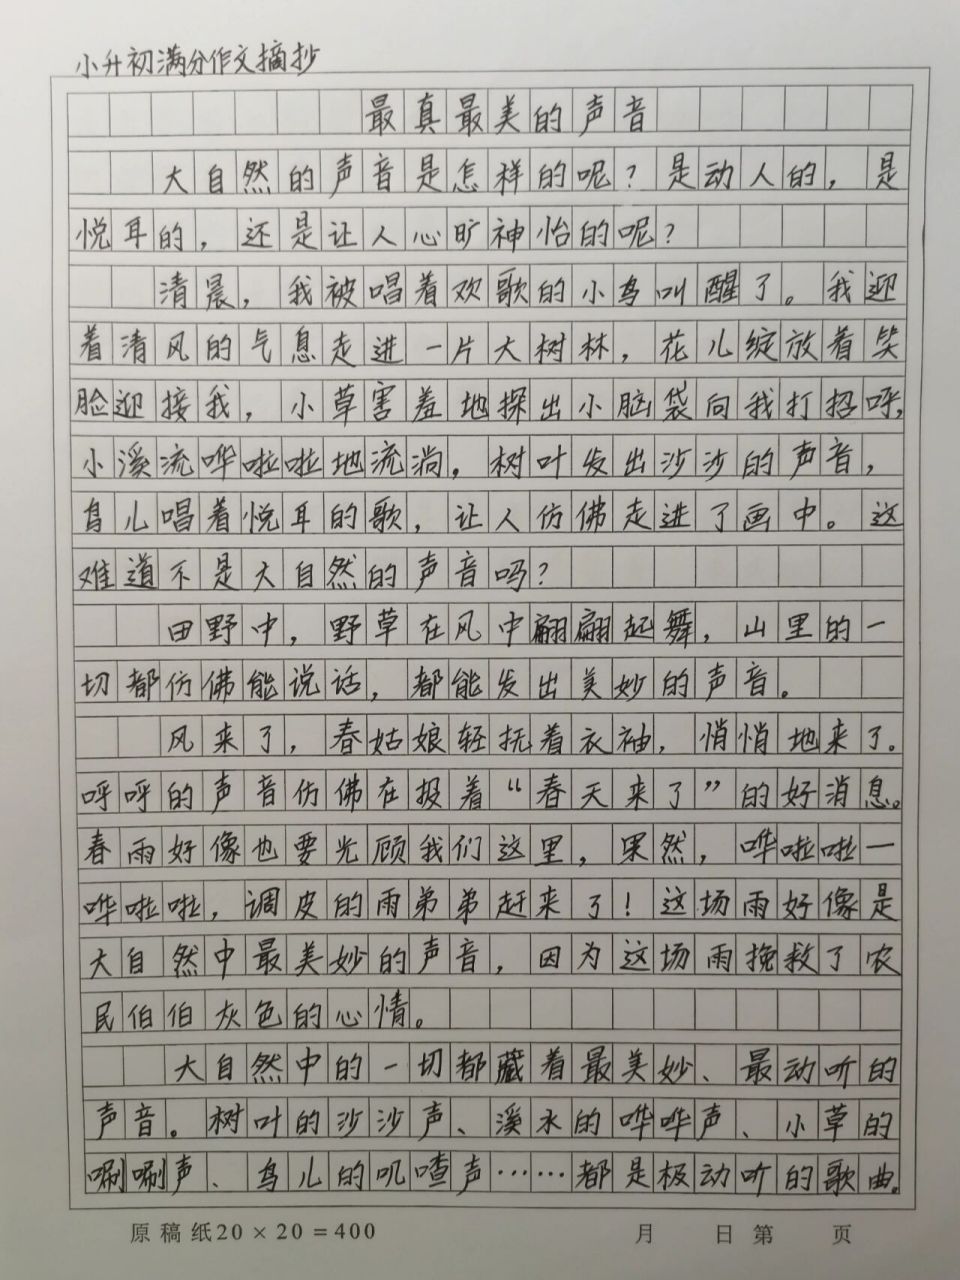 小升初满分作文摘抄
最真最美的声音
大自然的声音是怎样的呢？是动人的，是
悦耳的，还是让人心旷神怡的呢？
清晨，我被唱着欢歌的小鸟叫醒了。我迎
着清风的气息走进一片大树林，花儿绽放着笑
脸迎接我，小草害羞地探出小脑袋向我打招呼，
小溪流哗啦啦地流淌，树叶发出沙沙的声音，
鸟儿唱着悦耳的歌，让人仿佛走进了画中。这
难道不是大自然的声音吗？
田野中，野草在风中翩翩起舞，山里的一
切都仿佛能说话，都能发出美妙的声音。
风来了，春姑娘轻抚着衣袖，悄悄地来了。
呼呼的声音仿佛在报着“春天来了”的好消息。
春雨好像也要光顾我们这里，果然，哗啦啦一
哗啦啦，调皮的雨弟弟赶来了！这场雨好像是
大自然中最美妙的声音，因为这场雨挽救了农
民伯伯灰色的心情。
大自然中的一切都藏着最美妙、最动听的
声音。树叶的沙沙声、溪水的哗哗声、小草的
唰唰声、鸟儿的叽喳声……都是极动听的歌曲。
原稿纸20×20=400 月 日 第 页